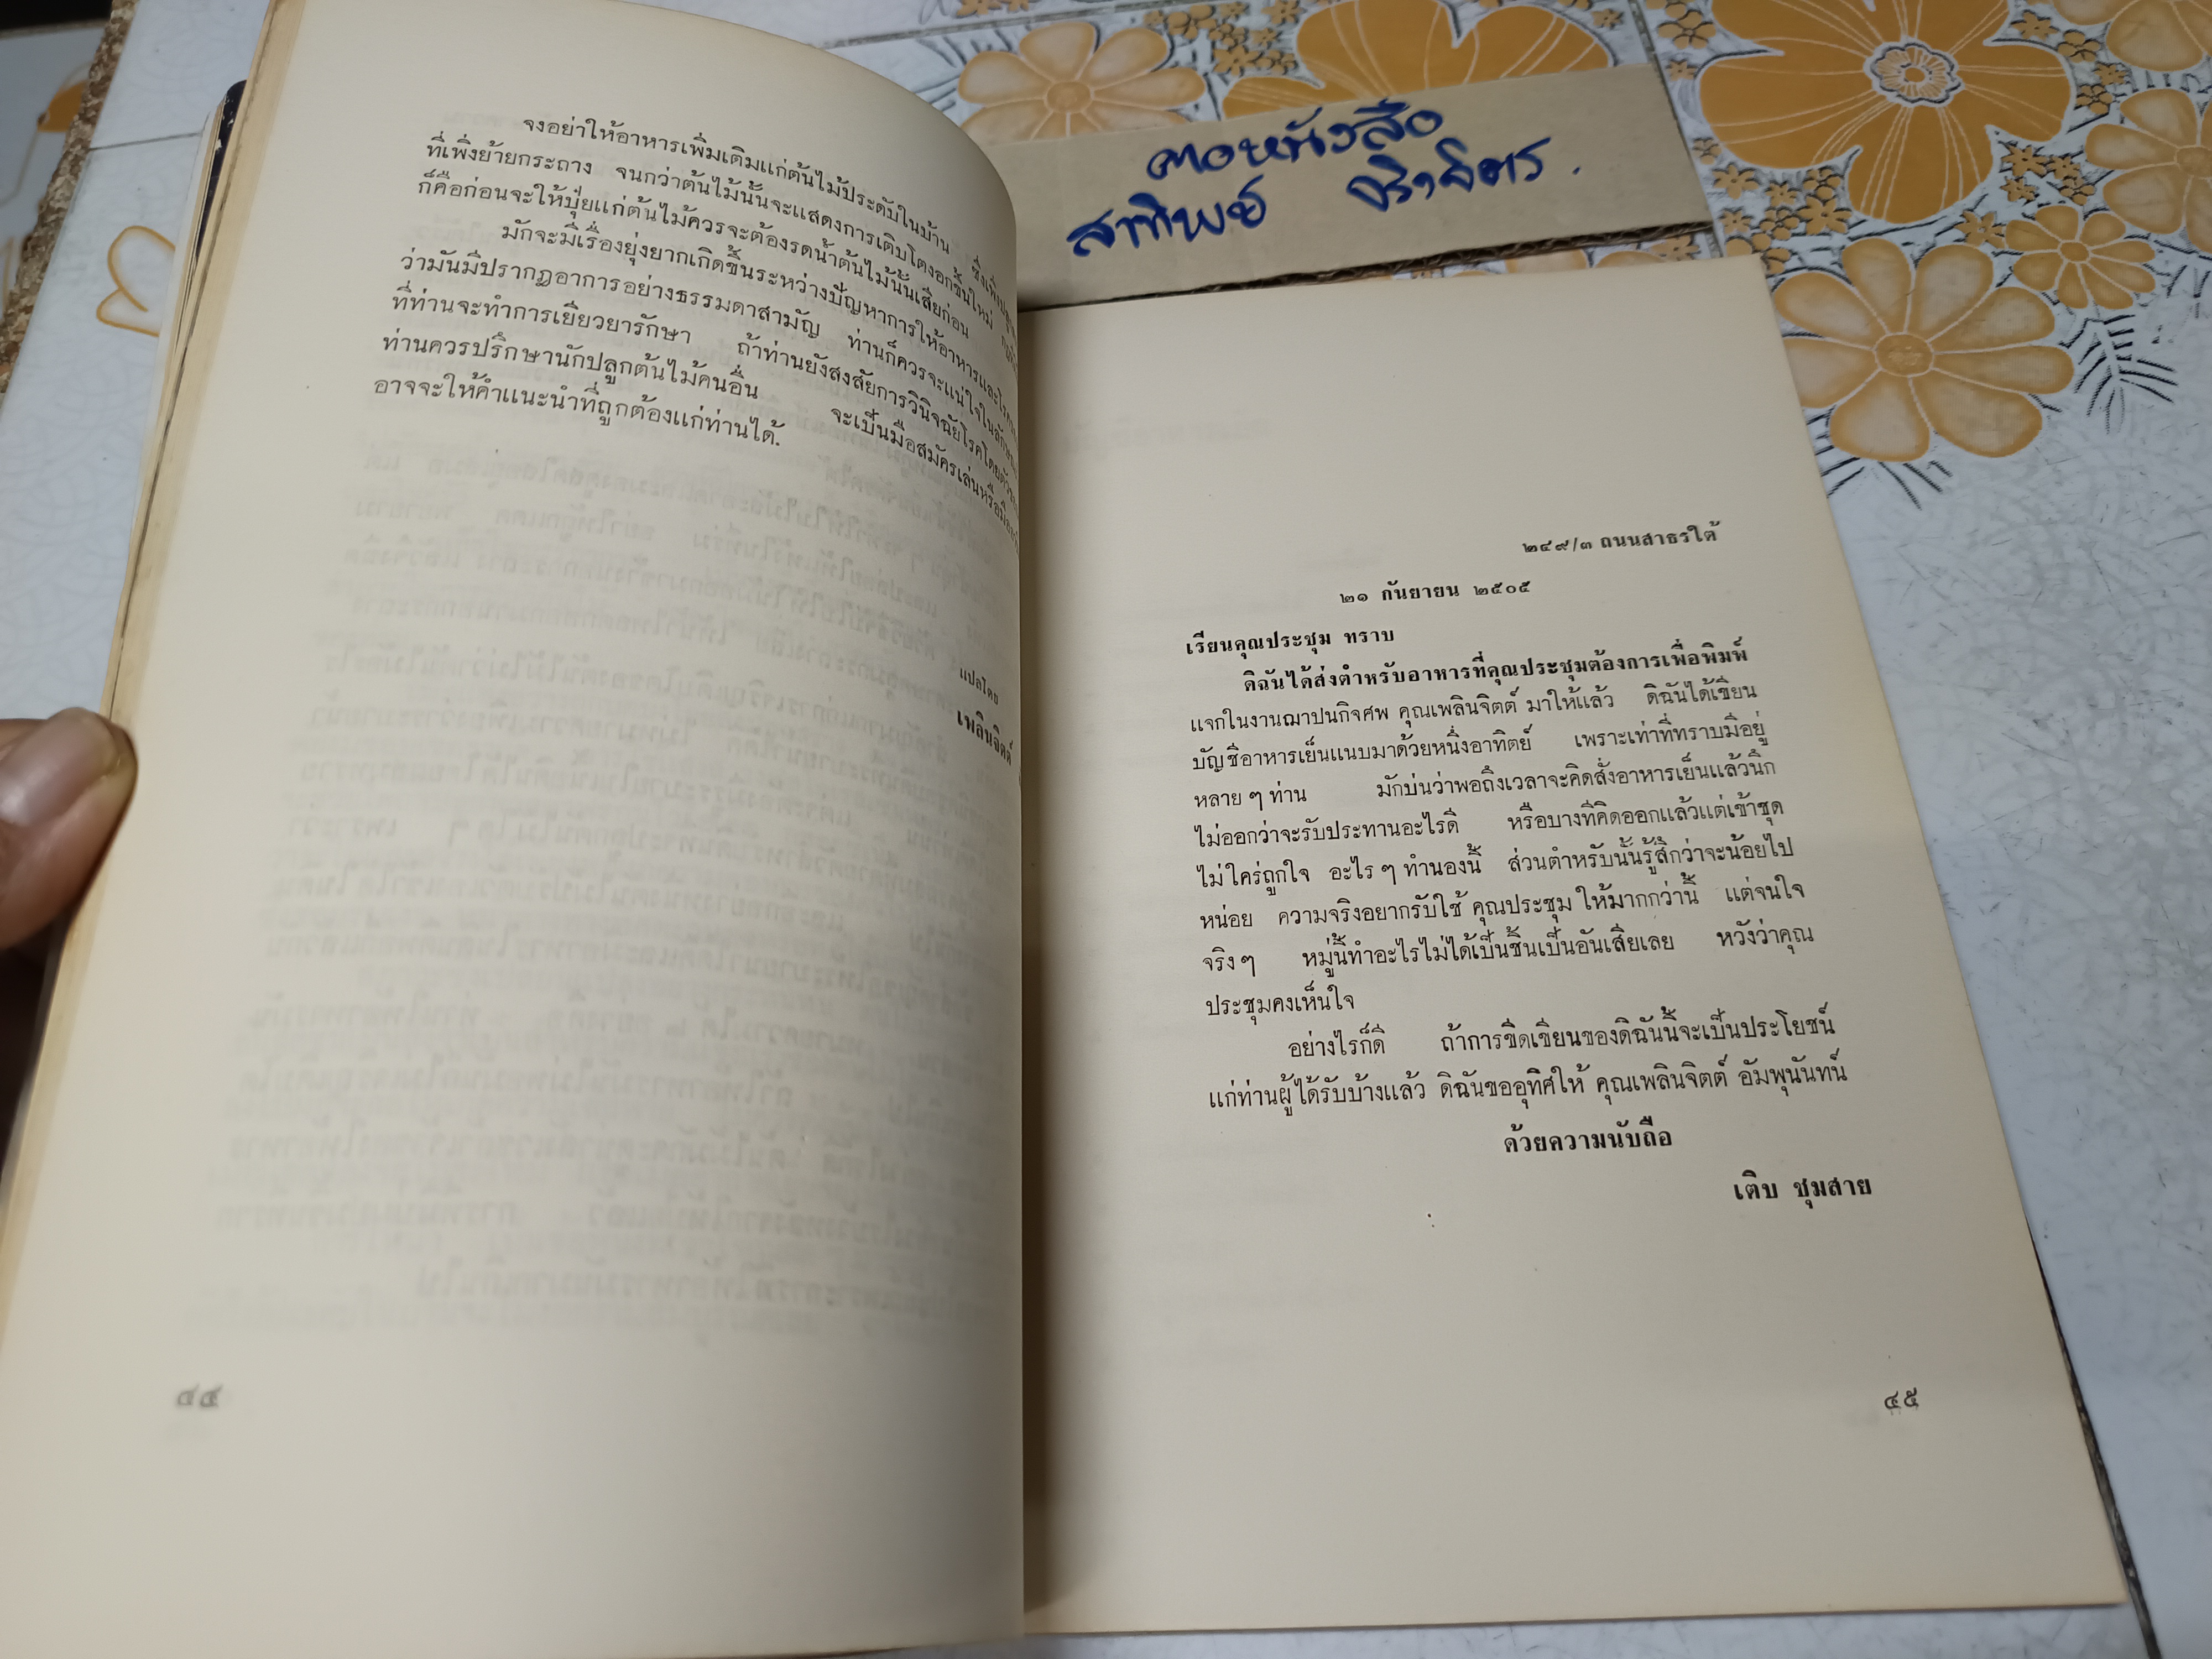 จงอย่าให้อาหารเพิ่มเติมแก่ต้นไม้ประดับในบ้าน
ที่เพิ่งย้ายกระถาง จนกว่าต้นไม้นั้นจะแสดงการเติบโตงอกขึ้นใหม่
ก็คือก่อนจะให้ปุ๋ยแก่ต้นไม้ควรจะต้องรดน้ำต้นไม้นั้นเสียก่อน
มักจะมีเรื่องยุ่งยากเกิดขึ้นระหว่างปัญหาการให้อาหารและ
ว่ามันมีปรากฏอาการอย่างธรรมดาสามัญ ท่านก็ควรจะแน่ใจใน
ที่ท่านจะทำการเยียวยารักษา ถ้าท่านยังสงสัยการวินิจฉัยโรคโดย
ท่านควรปรึกษานักปลูกต้นไม้คนอื่น จะเป็นมือสมัครเล่นหรือ
อาจจะให้คำแนะนำที่ถูกต้องแก่ท่านได้.
แปลโดย
เพลินจิตต์
คอหนังสือ
สาทิพย์
๒๔๙/๓ ถนนสาธรใต้
๒๑ กันยายน ๒๕๐๕
เรียนคุณประชุม ทราบ
ดิฉันได้ส่งตำหรับอาหารที่คุณประชุมต้องการเพื่อพิมพ์
แจกในงานฌาปนกิจศพ คุณเพลินจิตต์ มาให้แล้ว ดิฉันได้เขียน
บัญชีอาหารเย็นแนบมาด้วยหนึ่งอาทิตย์ เพราะเท่าที่ทราบมีอยู่
หลาย ๆ ท่าน มักบ่นว่าพอถึงเวลาจะคิดสั่งอาหารเย็นแล้วนึก
ไม่ออกว่าจะรับประทานอะไรดี หรือบางทีคิดออกแล้วแต่เข้าชุด
ไม่ใคร่ถูกใจ อะไร ๆ ทำนองนี้ ส่วนตำหรับนั้นรู้สึกว่าจะน้อยไป
หน่อย ความจริงอยากรับใช้ คุณประชุม ให้มากกว่านี้ แต่จนใจ
จริง ๆ หมู่นี้ทำอะไรไม่ได้เป็นชิ้นเป็นอันเสียเลย หวังว่าคุณ
ประชุมคงเห็นใจ
อย่างไรก็ดี ถ้าการขีดเขียนของดิฉันนี้จะเป็นประโยชน์
แก่ท่านผู้ได้รับบ้างแล้ว ดิฉันขออุทิศให้ คุณเพลินจิตต์ อัมพุนันทน์
ด้วยความนับถือ
เติบ ชุมสาย
๔๕